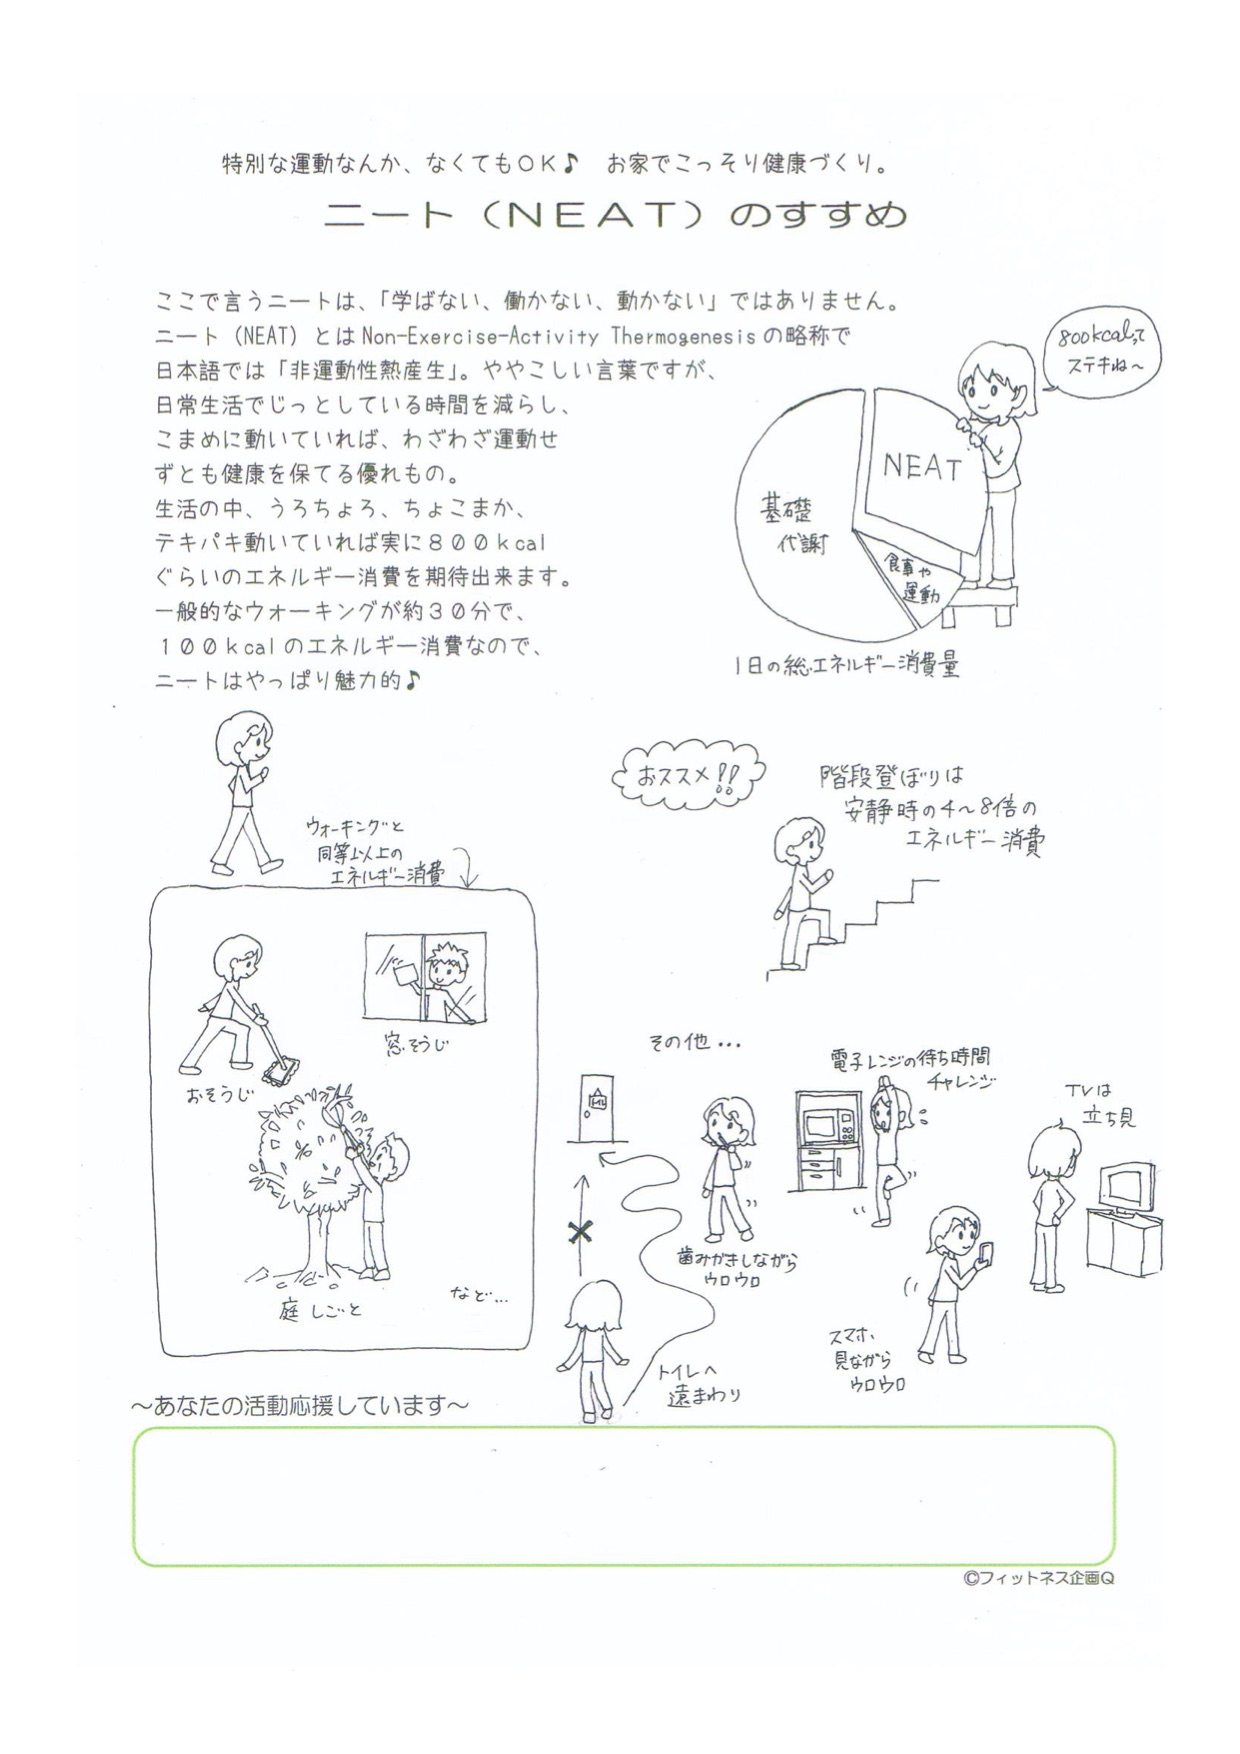 特別な運動なんか、なくてもＯＫ♪　お家でこっそり健康づくり。
ニート（ＮＥＡＴ）のすすめ
ここで言うニートは、「学ばない、働かない、動かない」ではありません。
ニート（NEAT）とは Non-Exercise-Activity Thermogenesis の略称で
日本語では「非運動性熱産生」。ややこしい言葉ですが、
日常生活でじっとしている時間を減らし、
こまめに動いていれば、わざわざ運動せ
ずとも健康を保てる優れもの。
生活の中、うろちょろ、ちょこまか、
テキパキ動いていれば実に８００ｋcal
ぐらいのエネルギー消費を期待出来ます。
一般的なウォーキングが約３０分で、
１００ｋcal のエネルギー消費なので、
ニートはやっぱり魅力的♪
800kcalって
ステキね～
NEAT
基礎
代謝
食事や
運動
1日の総エネルギー消費量
ウォーキングと
同等以上の
エネルギー消費
おそうじ
窓そうじ
庭しごと
など…
おススメ!!
階段登ぼりは
安静時の4～8倍の
エネルギー消費
その他…
トイレへ
遠まわり
歯みがきしながら
ウロウロ
電子レンジの待ち時間
チャレンジ
スマホ、
見ながら
ウロウロ
TVは
立ち見
～あなたの活動応援しています～
©フィットネス企画Ｑ